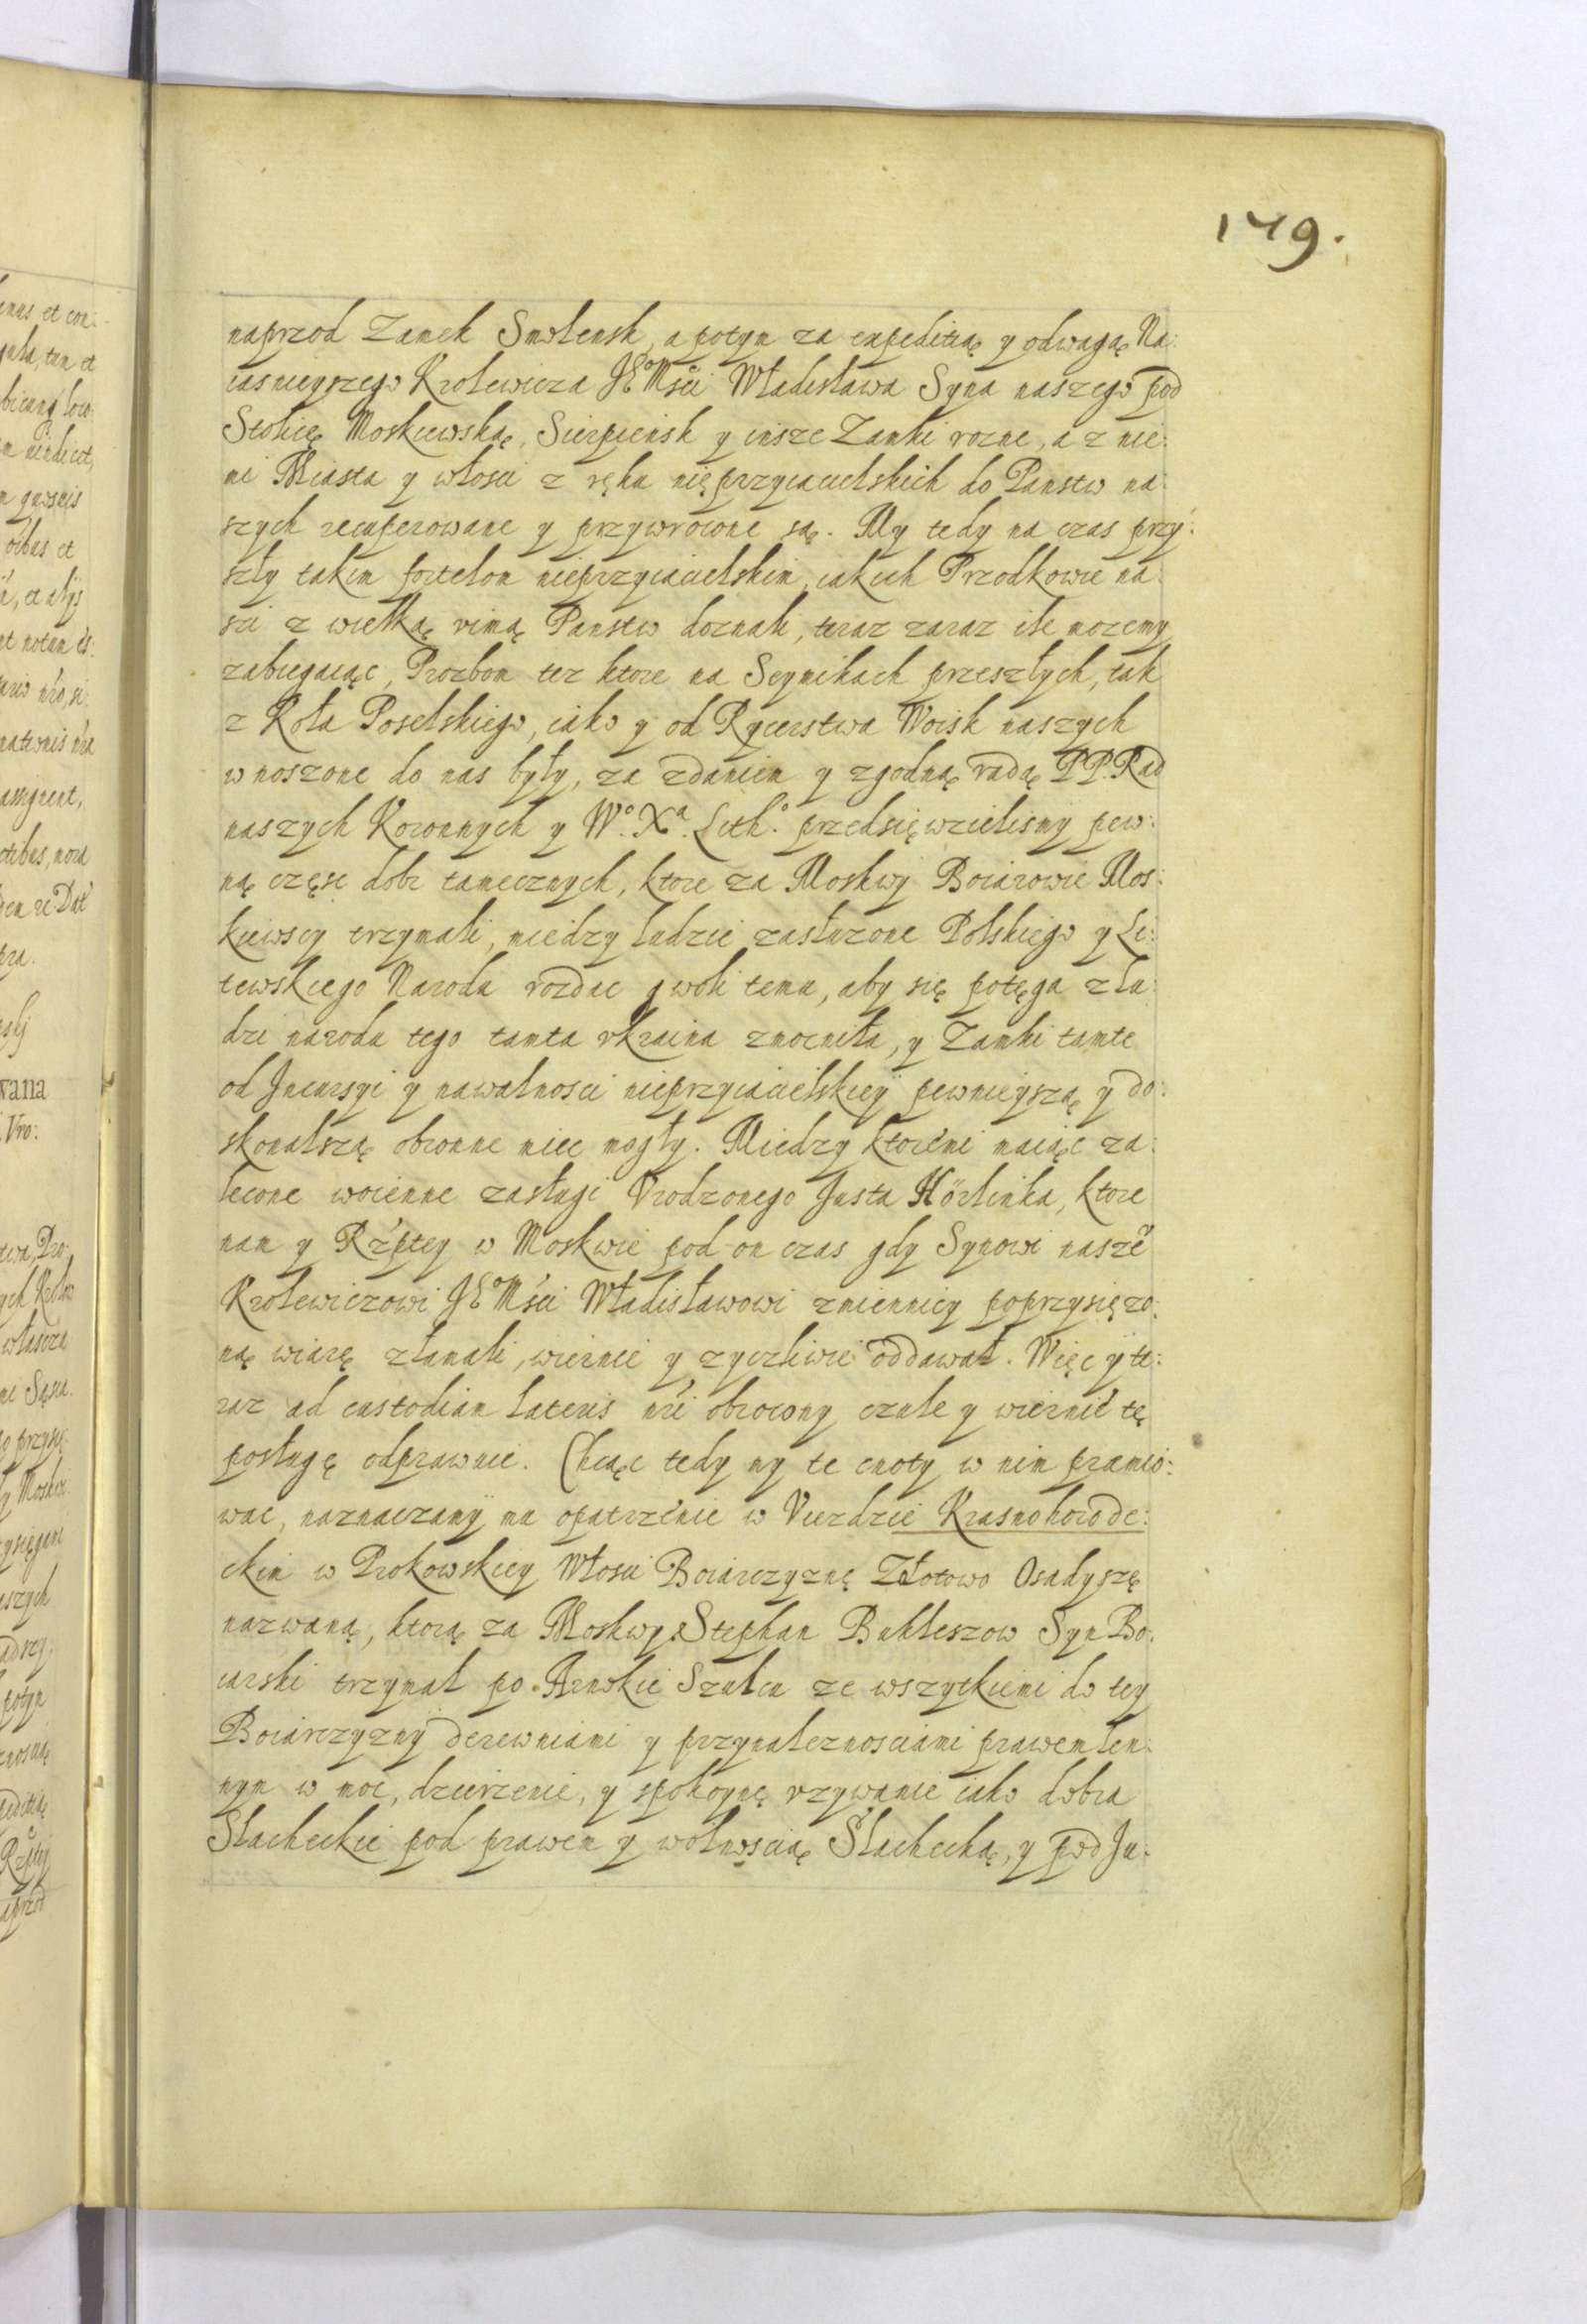 149.
naprzod Zamek Smolensk, a potym za expeditią y odwagą Na:
iasnieyszego Krolewicza JE°Mści Władisława Syna naszego pod
Stolicę Moskiewską, Sierpieńsk y insze Zamki rozne, a z nie:
mi Miasta y włosci z ręku nieprzyiacielskich do Panstw na:
szych recuperowane y przywrocone są. My tedy na czas przy:
szły takim fortelom nieprzyiacielskim, iakich Przodkowie na:
szi z wielką ruiną Panstw doznali, teraz zaraz ile mozemy
zabiegaiąc, Prozbom tez ktore na Seymikach przeszłych, tak
z Koła Poselskiego, iako y od Rycerstwa Woisk naszych
wnoszone do nas były, za zdaniem y zgodną radą PP. Rad
naszych Koronnych y W°. Xª. Lith.° przedsięwzielismy pew:
ną częsc dobr tamecznych, ktore za Moskwy Boiarowie Mos:
kiewscy trzymali, miedzy ludzie zasłuzone Polskiego y Li:
tewskiego Narodu rozdac gwoli temu, aby się potęga z lu:
dzi narodu tego tamta vkraina zmocniła, y Zamki tamte
od Incursyi y nawalnosci nieprzyiacielskiey pewnieyszą y do:
skonalszą obronne miec mogły. Miedzy ktoremi maiąc za:
lecone woienne zasługi Vrodzonego Justa Hörlinka, ktore
nam y Rzptey w Moskwie pod on czas gdy Synowi nasze°
Krolewiczowi JE°Mści Władisławowi zmiennicy poprzysięzo:
ną wiarę złamali, wiernie y zyczliwie oddawał. Więc y te:
raz ad custodiam lateris nri obrocony czule y wiernie tę
posługę odprawuie. Chcąc tedy my te cnoty w nim pramio:
wac, naznaczamy mu opatrzenie w Vieździe Krasnohorode:
ckim w Prokowskiey Włosci Boiarczyznę Złotowo Osadyszę
nazwaną, ktorą za Moskwy Stephan Bukleszow Syn Bo:
iarski trzymał po Arnolcie Szulcu ze wszytkiemi do tey
Boiarczyzny derewniami y przynaleznosciami prawem len:
nym w moc, dzierzenie, y spokoynę vzywanie iako dobra
Slacheckie pod prawem y wolnoscią Slachecką, y pod Ju: